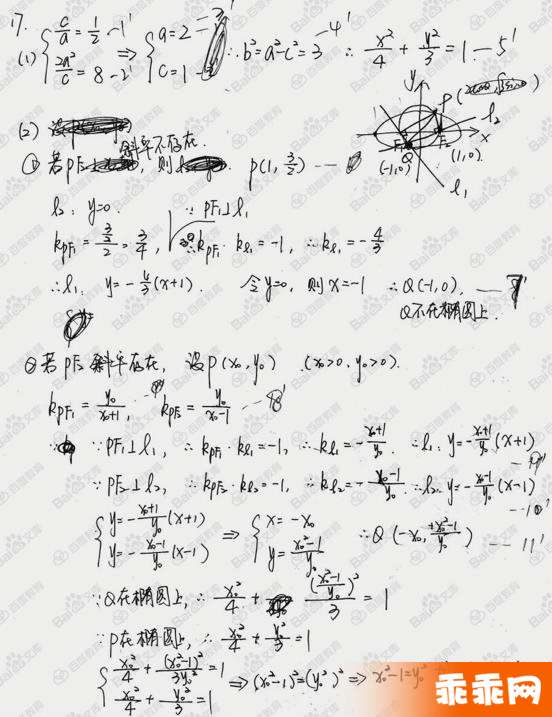 17.
(1) { c/a = 1/2 —1' ⇒ { a=2 —3' ∴ b²=a²-c²=3 —4' ∴ x²/4 + y²/3 = 1 —5'
2a²/c = 8 —2' c=1
(2)
y P
l₂
x
F₁ F₂
(-1,0) Q (1,0)
l₁
① 若PF₂斜率不存在, 则 P(1, 3/2) ---
l₂: y=0. ∵ PF₁⊥l₁
k_PF₁ = (3/2)/2 = 3/4, ∴ k_PF₁·k_l₁ = -1, ∴ k_l₁ = -4/3
∴ l₁: y = -4/3(x+1). 令y=0, 则x=-1 ∴ Q(-1,0). --- 7'
Q不在椭圆上.
② 若PF₂斜率存在, 设P(x₀,y₀) (x₀>0, y₀>0).
k_PF₁ = y₀/(x₀+1), k_PF₂ = y₀/(x₀-1) --- 8'
∵ PF₁⊥l₁, ∴ k_PF₁·k_l₁=-1, ∴ k_l₁ = -(x₀+1)/y₀ ∴ l₁: y=-(x₀+1)/y₀ (x+1)
∵ PF₂⊥l₂, ∴ k_PF₂·k_l₂=-1, ∴ k_l₂ = -(x₀-1)/y₀ ∴ l₂: y=-(x₀-1)/y₀ (x-1) --- 10'
{ y=-(x₀+1)/y₀ (x+1) ⇒ { x=-x₀ ∴ Q(-x₀, (x₀²-1)/y₀) --- 11'
y=-(x₀-1)/y₀ (x-1) y=(x₀²-1)/y₀
∵ Q在椭圆上, ∴ x₀²/4 + ((x₀²-1)/y₀)²/3 = 1
∵ P在椭圆上, ∴ x₀²/4 + y₀²/3 = 1
{ x₀²/4 + (x₀²-1)²/3y₀² = 1 ⇒ (x₀²-1)²=(y₀²)² ⇒ x₀²-1=y₀²
x₀²/4 + y₀²/3 = 1
乖乖网